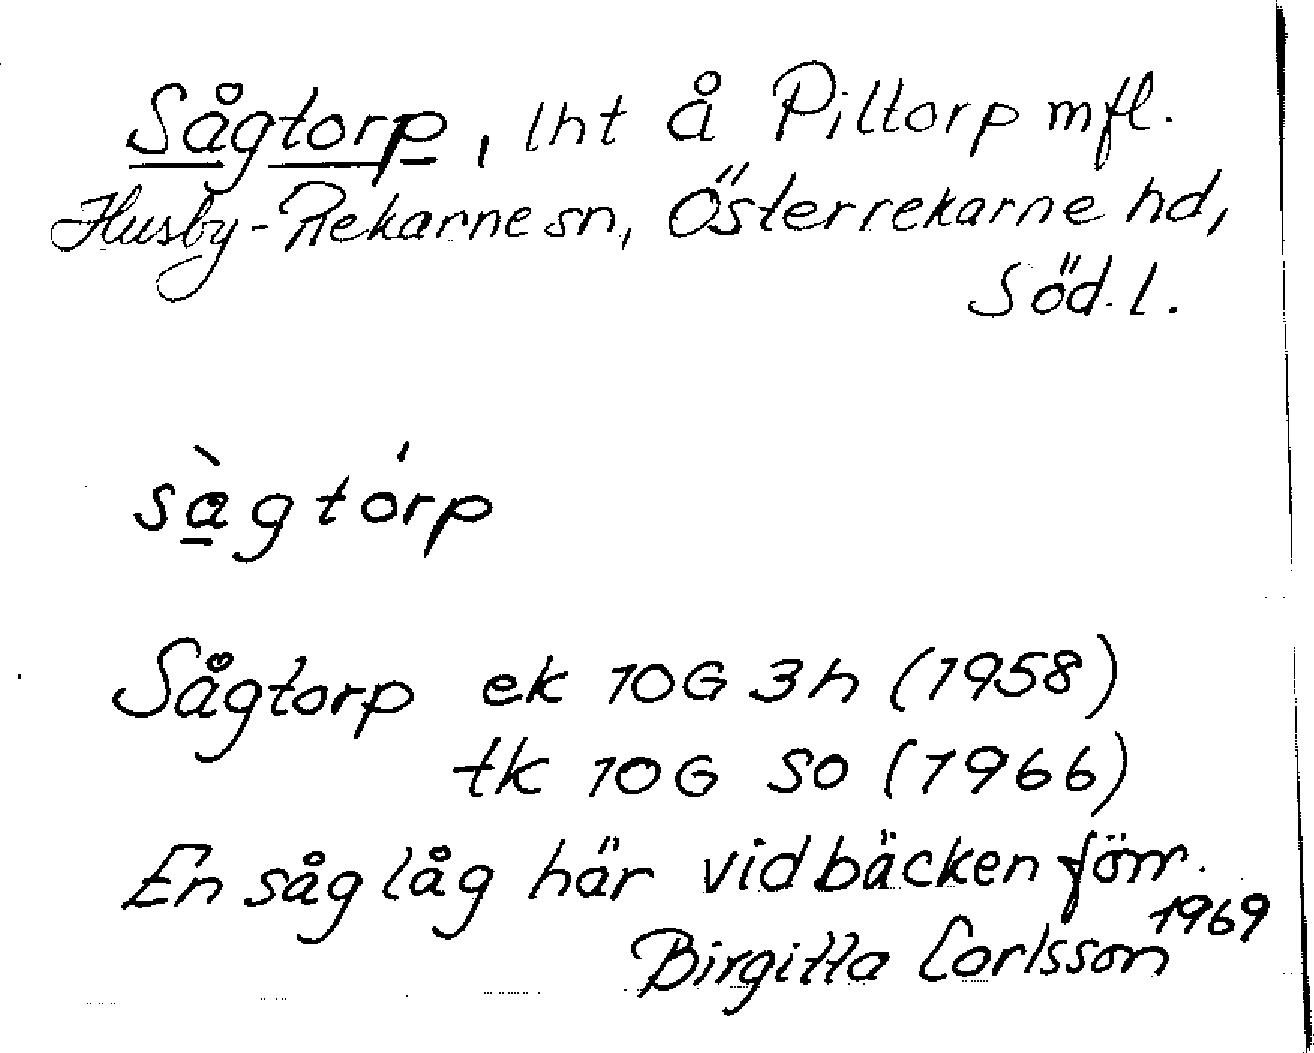 Sågtorp, lht å Piltorp mfl.
Husby-Rekarne sn, Österrekarne hd,
Söd. l.
sà̱gtórp
Sågtorp ek 10G 3h (1958)
tk 10G SO (1966)
En såg låg här vid bäcken förr.
Birgitta Carlsson 1969